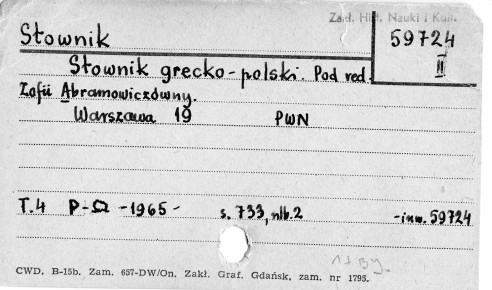 Zakł. Hist. Nauki i Kult.
Słownik
59724
II
Słownik grecko-polski. Pod red.
Zofii Abramowiczówny.
Warszawa 19 PWN
T.4 P-Ω -1965- s. 733, nlb. 2 -inw. 59724
CWD. B-15b. Zam. 657-DW/On. Zakł. Graf. Gdańsk, zam. nr 1795.